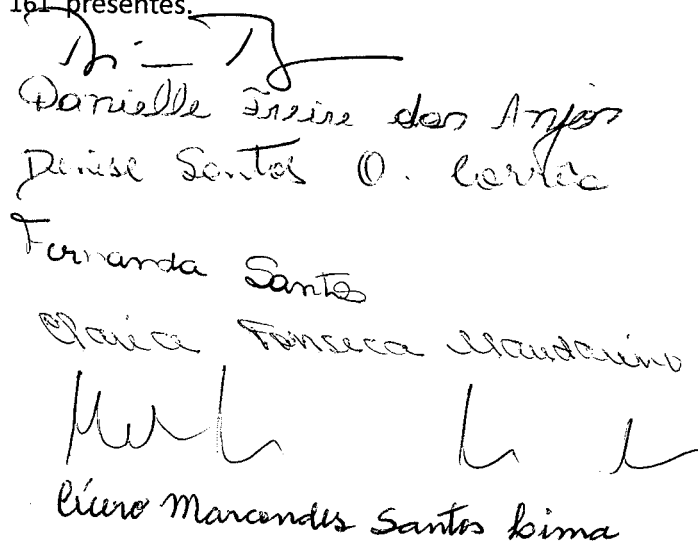 161 presentes.
Danielle Freire dos Anjos
Denise Santos O. Corrêa
Fernanda Santos
Fonseca
Cícero Marcondes Santos Lima